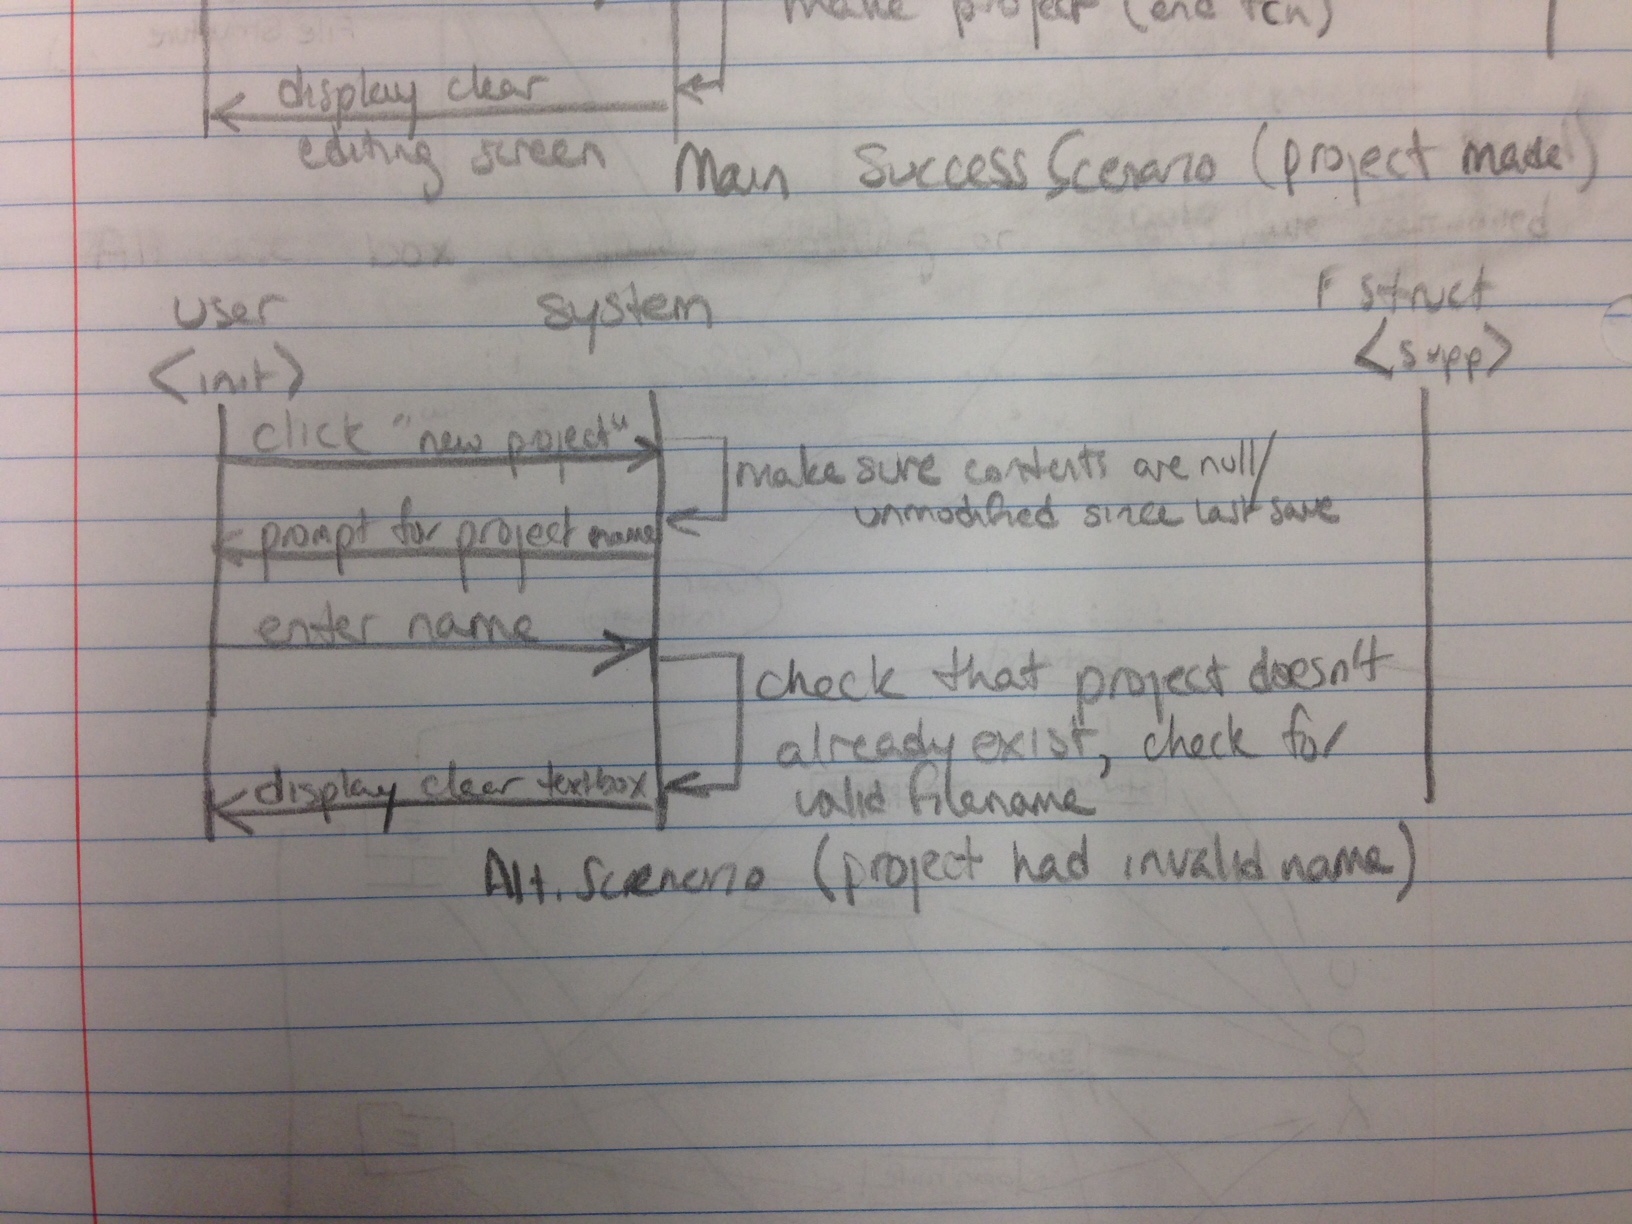 make project (end fcn)
display clear
editing screen
Main Success Scenario (project made)
box
or
user system F struct
<init> <supp>
click "new project"
make sure contents are null/
unmodified since last save
prompt for project name
enter name
check that project doesn't
already exist, check for
valid filename
display clear textbox
Alt. Scenenario (project had invalid name)